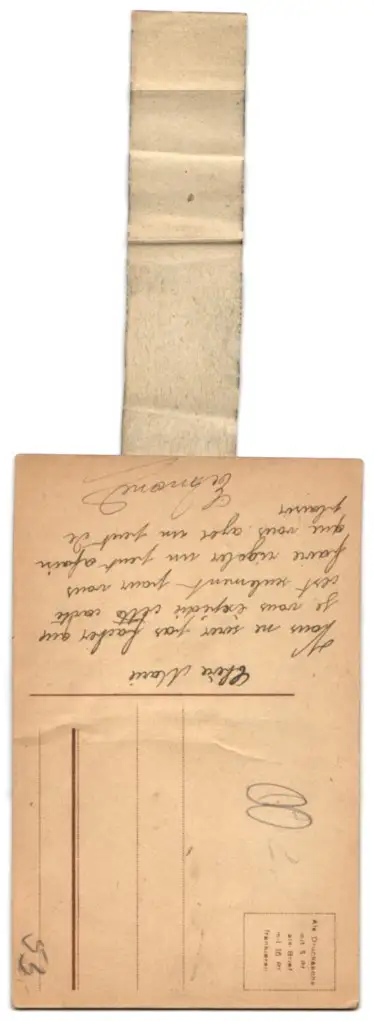 Chère Marie
Vous ne serer pas facher que
je vous expedit cette carte
cest seulement pour vous
faire rigoler un peut afin
que vous ayer un peut de
plaisir
Als Drucksache
mit 5 Pf.
als Brief
mit 15 Pf.
frankieren
53